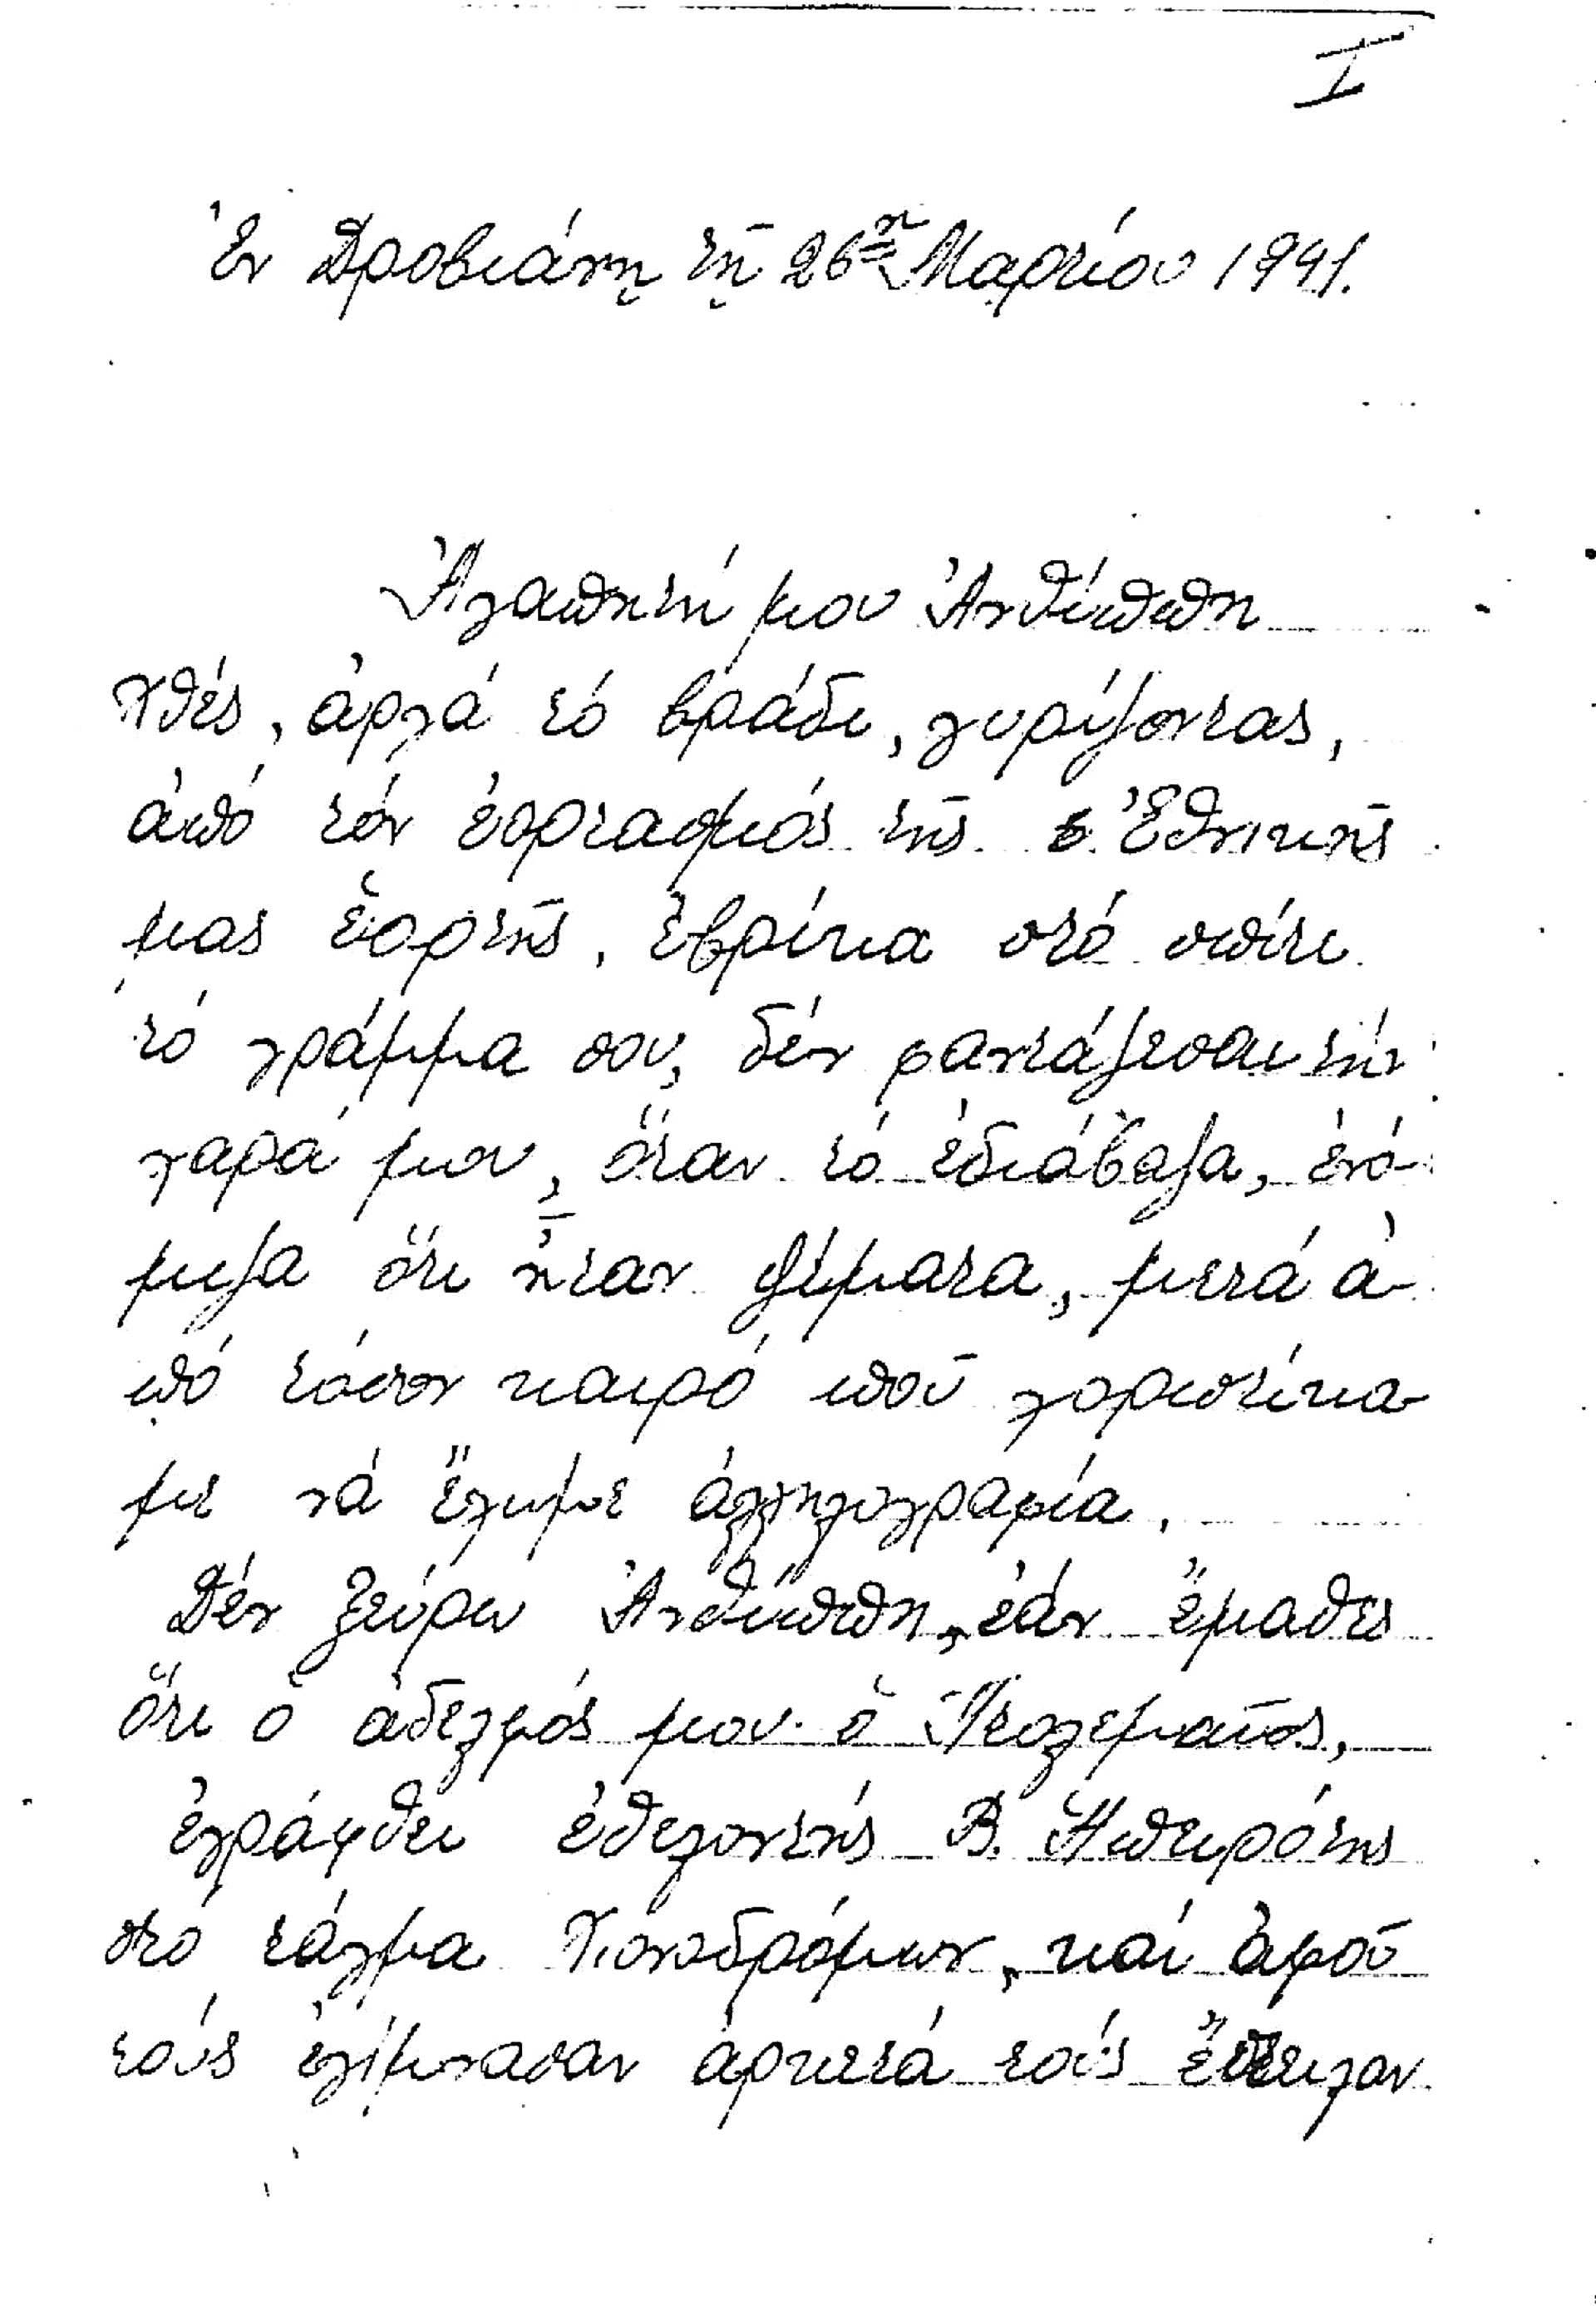 I
Ἐν Δροβιάνῃ τῇ 26ῃ Μαρτίου 1941.
Ἀγαπητή μου Ἀνθίππη
Χθές, ἀργά τό βράδι, γυρίζοντας,
ἀπό τόν ἑορτασμός τῆς Ἐθνικῆς
μας ἑορτῆς, ἐβρίκα στό σπίτι
τό γράμμα σου, δέν φαντάζεσαι τήν
χαρά μου, ὅταν τό ἐδιάβαζα, ἐνό-
μιζα ὅτι ἦταν ψέματα, μετά ἀ-
πό τόσον καιρό ποῦ χοριστίκα
με νά ἔχωμε ἀλληλογραφία.
Δέν ξεύρω Ἀνθίππη, ἐάν ἔμαθες
ὅτι ὁ ἀδελφός μου ὁ Πτολεμαῖος,
ἐγράφθει ἐθελοντής Β. Ἠπειρότης
στό τάγμα Χιονοδρόμων, καί ἀφοῦ
τούς ἐγίμνασαν ἀρκετά τούς ἔστειλαν